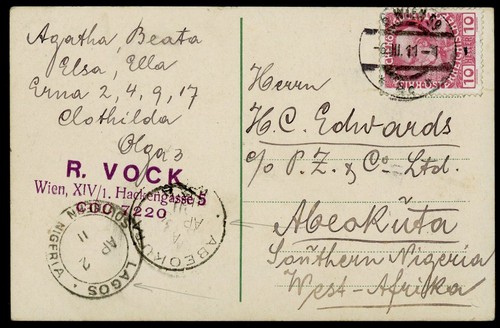 Agatha, Beata
Elsa, Ella
Erna 2, 4, 9, 17
Clothilda
Olga 3
R. VOCK
Wien, XIV/1. Hackengasse 5
7220
LAGOS
SOUTHERN NIGERIA
AP 2
11
ABEOKUTA
AP 3
WIEN
10 10
Herrn
H. C. Edwards
c/o P. Z. & Co Ltd.
Abeokuta
Southern Nigeria
West-Afrika